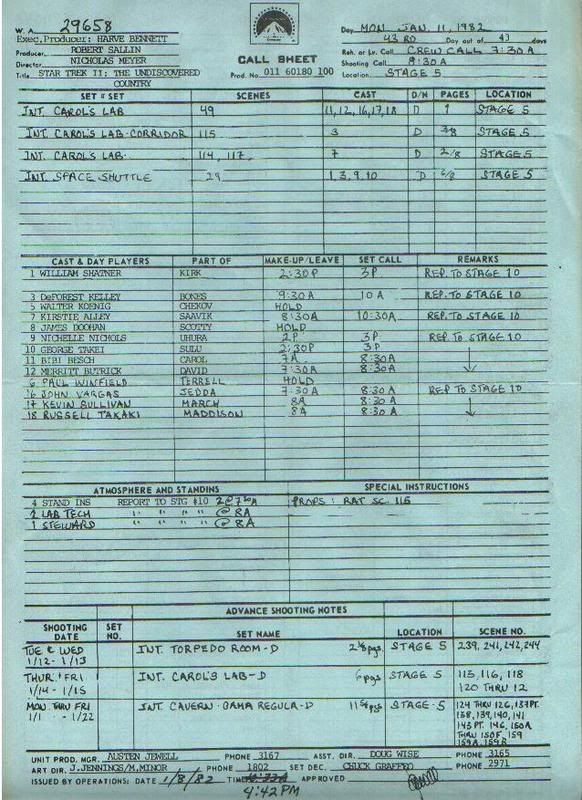 W. A. 29658
Exec. Producer: HARVE BENNETT
Producer ROBERT SALLIN
Director NICHOLAS MEYER
Title STAR TREK II: THE UNDISCOVERED COUNTRY
CALL SHEET
Prod. No. 011 60180 100
Day MON JAN. 11, 1982
43 RD Day out of 43 days
Reh. or Lv. Call CREW CALL 7:30 A
Shooting Call 8:30 A
Location STAGE 5
SET # SET SCENES CAST D/N PAGES LOCATION
INT. CAROL'S LAB 49 11, 12, 16, 17, 18 D 1 STAGE 5
INT. CAROL'S LAB-CORRIDOR 115 3 D 3/8 STAGE 5
INT. CAROL'S LAB- 114, 117, 7 D 2/8 STAGE 5
INT. SPACE SHUTTLE 29 1, 3, 9, 10 D 6/8 STAGE 5
CAST & DAY PLAYERS PART OF MAKE-UP/LEAVE SET CALL REMARKS
1 WILLIAM SHATNER KIRK 2:30P 3P REP. TO STAGE 10
3 DeFOREST KELLEY BONES 9:30A 10A REP. TO STAGE 10
5 WALTER KOENIG CHEKOV HOLD
7 KIRSTIE ALLEY SAAVIK 8:30A 10:30A REP. TO STAGE 10
8 JAMES DOOHAN SCOTTY HOLD
9 NICHELLE NICHOLS UHURA 2P 3P REP. TO STAGE 10
10 GEORGE TAKEI SULU 2:30P 3P
11 BIBI BESCH CAROL 7A 8:30A
12 MERRITT BUTRICK DAVID 7:30A 8:30A
6 PAUL WINFIELD TERRELL HOLD
16 JOHN VARGAS JEDDA 7:30A 8:30A REP TO STAGE 10
17 KEVIN SULLIVAN MARCH 8A 8:30A
18 RUSSELL TAKAKI MADDISON 8A 8:30A
ATMOSPHERE AND STANDINS SPECIAL INSTRUCTIONS
4 STAND INS REPORT TO STG #10 PROPS: RAT SC. 115
2 LAB TECH " " " " @ 8A
1 STEWARD " " " " @ 8A
ADVANCE SHOOTING NOTES
SHOOTING DATE SET NO. SET NAME LOCATION SCENE NO.
TUE & WED 1/12 - 1/13 INT. TORPEDO ROOM-D pgs. STAGE 5 239, 241, 242, 244
THUR. & FRI 1/14 - 1/15 INT. CAROL'S LAB-D 6 pgs. STAGE 5 115, 116, 118
120 THRU 12
MON THRU FRI 1/1 - 1/22 INT. CAVERN - REGULA-D pgs STAGE-5 124 THRU 126, 137PT.
138, 139, 140, 141
143 PT. 146, 150A
THRU 150F, 159
159A, 159B
UNIT PROD. MGR. AUSTEN JEWELL PHONE 3167 ASST. DIR. DOUG WISE PHONE 3165
ART DIR. J.JENNINGS/M.MINOR PHONE 1802 SET DEC. CHUCK GRAFFEO PHONE 2971
ISSUED BY OPERATIONS: DATE 1/8/82 TIME APPROVED
4:42 PM